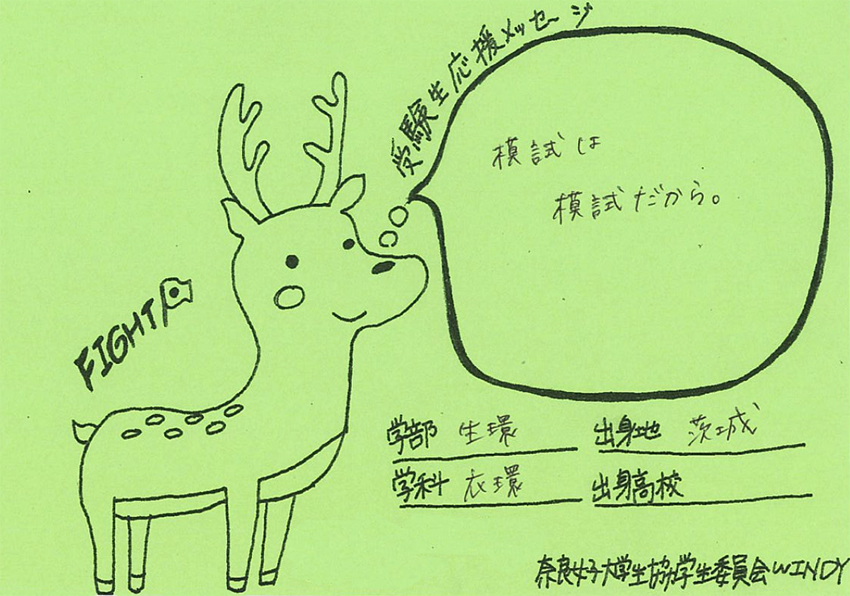 受験生応援メッセージ
模試は
模試だから。
FIGHT
学部 生環
出身地 茨城
学科 衣環
出身高校
奈良女子大学生協学生委員会WINDY